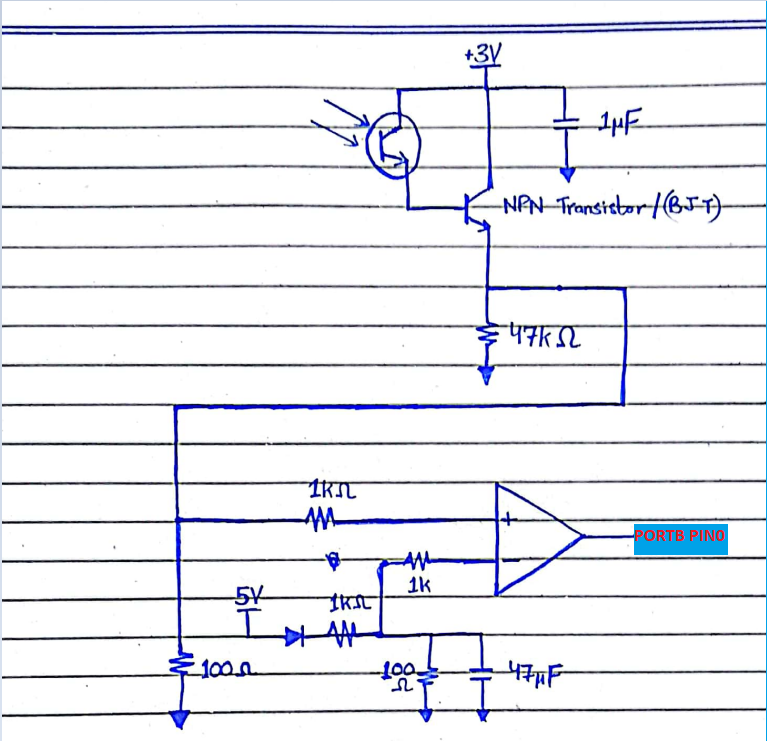 +3V
1µF
NPN Transistor/(BJT)
47kΩ
1kΩ
+
PORTB PIN0
-
1k
5V
1kΩ
100Ω
100
Ω
47µF